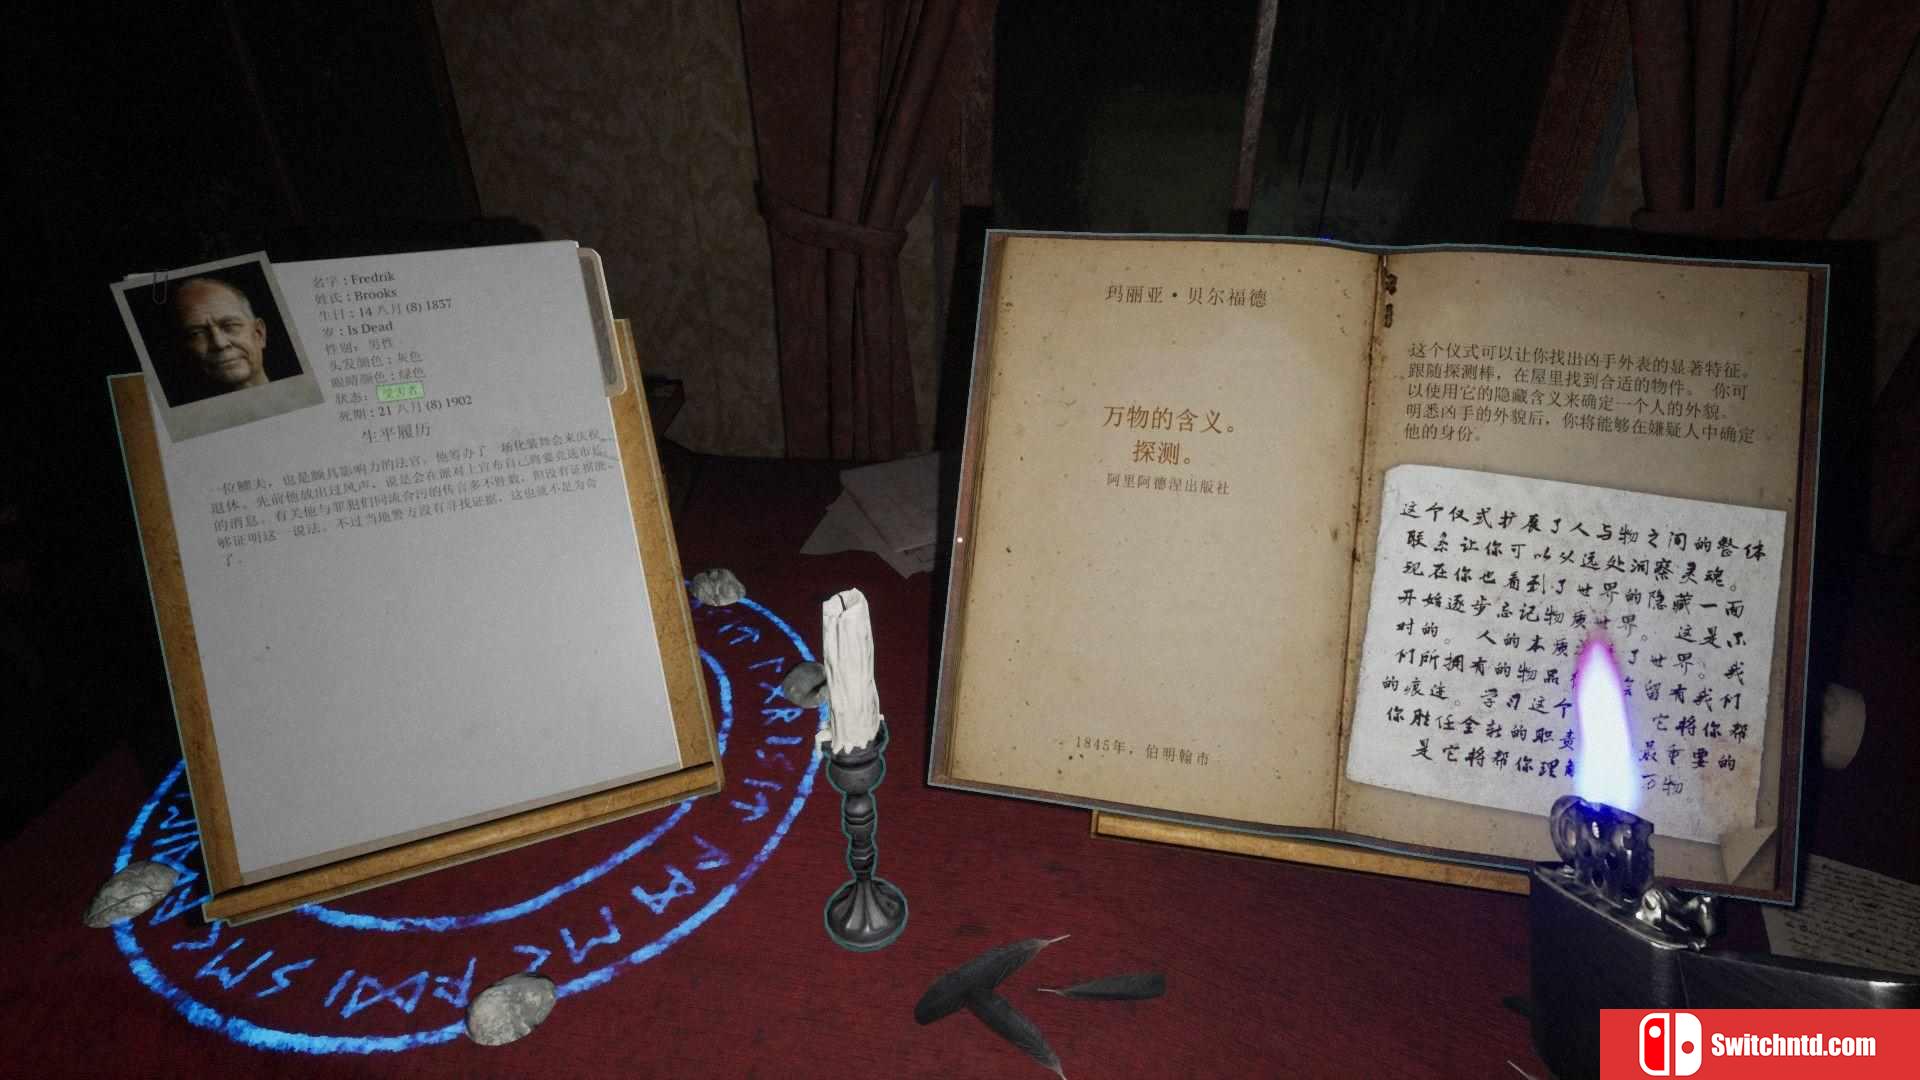 名字：Fredrik
姓氏：Brooks
生日：14 八月 (8) 1837
岁：Is Dead
性别：男性
头发颜色：灰色
眼睛颜色：绿色
状态：受害者
死期：21 八月 (8) 1902
生平履历
一位鳏夫，也是颇具影响力的法官。他筹办了一场化装舞会来庆祝
退休。先前他放出过风声，说是会在派对上宣布自己将要竞选市长
的消息。有关他与罪犯们同流合污的传言多不胜数，但没有证据能
够证明这一说法。不过当地警方没有寻找证据，这也就不足为奇
了。
玛丽亚·贝尔福德
万物的含义。
探测。
阿里阿德涅出版社
1845年，伯明翰市
这个仪式可以让你找出凶手外表的显著特征。
跟随探测棒，在屋里找到合适的物件。 你可
以使用它的隐藏含义来确定一个人的外貌。
明悉凶手的外貌后，你将能够在嫌疑人中确定
他的身份。
这个仪式扩展了人与物之间的整体
联系让你可以从远处洞察灵魂。
现在你也看到了世界的隐藏一面
开始逐步忘记物质世界。 这是不
对的。 人的本质 了世界。我
们所拥有的物品 留有我们
的痕迹。学习这个 它将你帮
你胜任全新的职责 最重要的
是它将帮你理 万物。
Switchntd.com